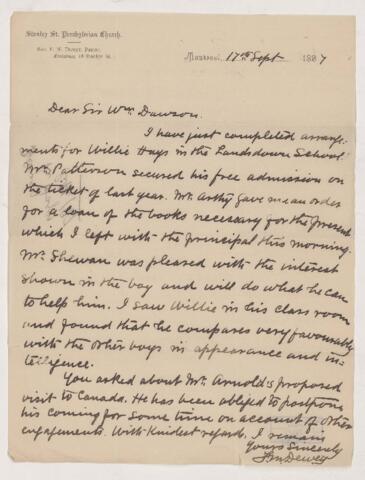 Stanley St. Presbyterian Church.
Rev. F. M. Dewey, Pastor,
Montreal, 17th Sept 1897
Dear Sir Wm. Dawson.
I have just completed arrange-
ments for Willie Hays in the Landsdown School
Mr. Patterson secured his free admission on
the ticket of last year. Mr. Arthy gave me an order
for a loan of the books necessary for the present
which I left with the principal this morning.
Mr. Shewan was pleased with the interest
shown in the boy and will do what he can
to help him. I saw Willie in his class room
and found that he compares very favourably
with the other boys in appearance and in-
telligence.
You asked about Mr. Arnold's proposed
visit to Canada. He has been obliged to postpone
his coming for some time on account of other
engagements. With Kindest regards. I remain
Yours Sincerely
F M Dewey